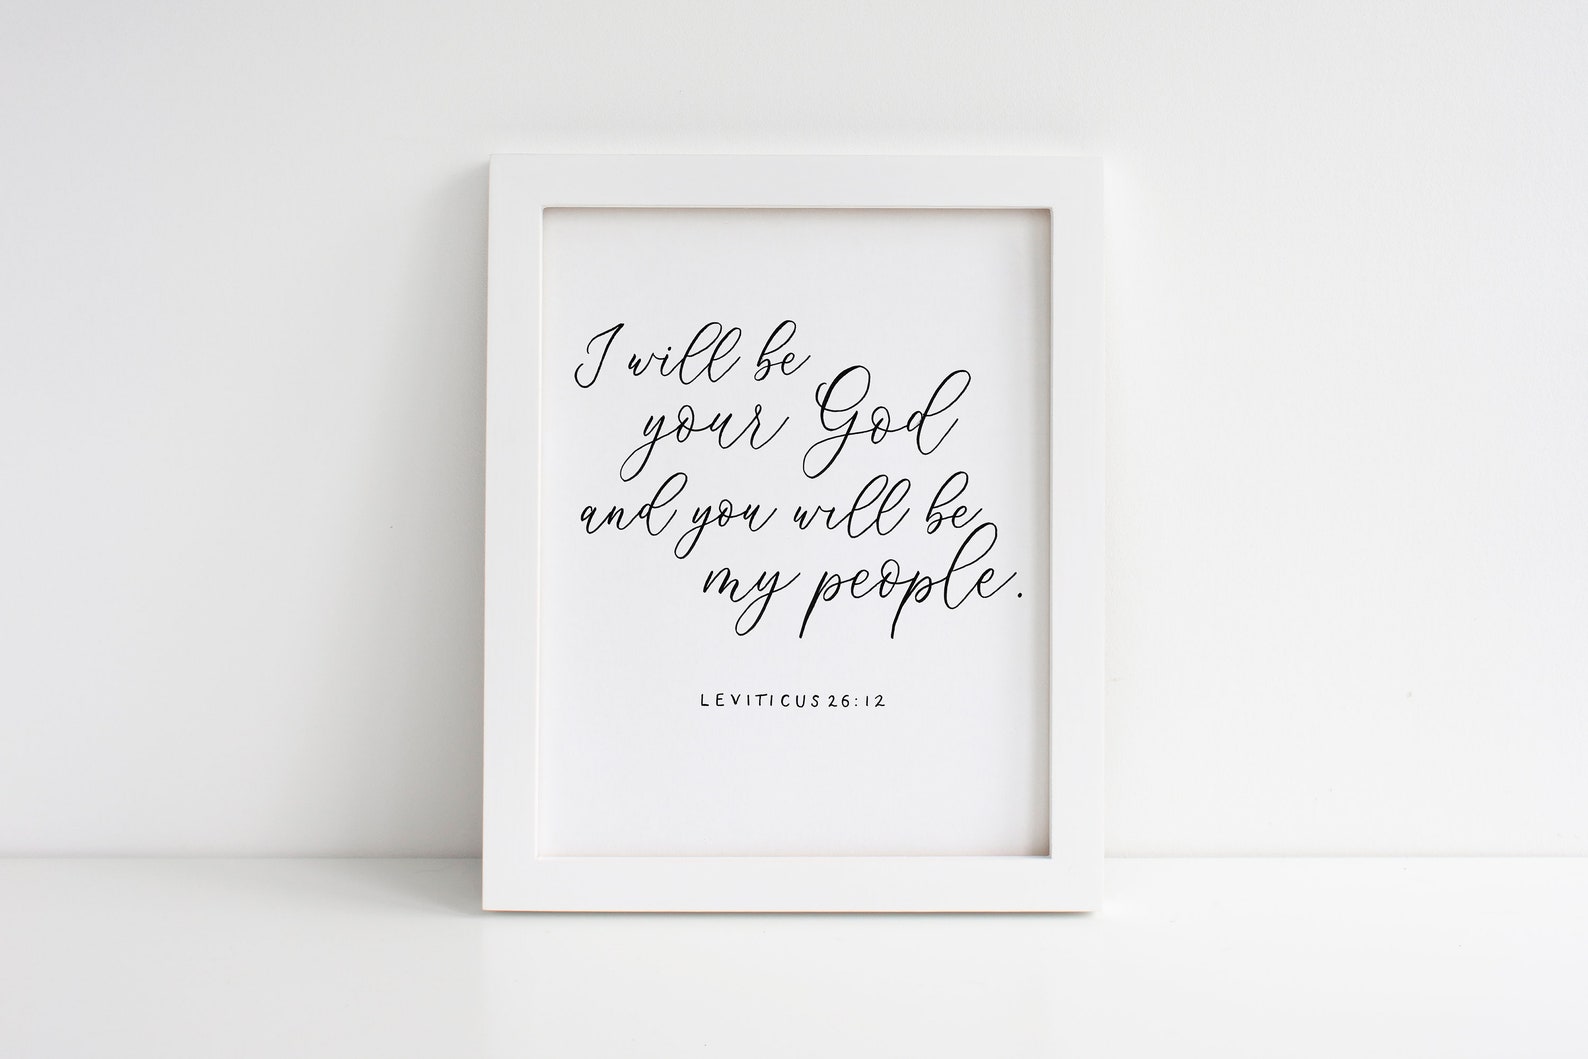 I will be
your God
and you will be
my people.
LEVITICUS 26:12